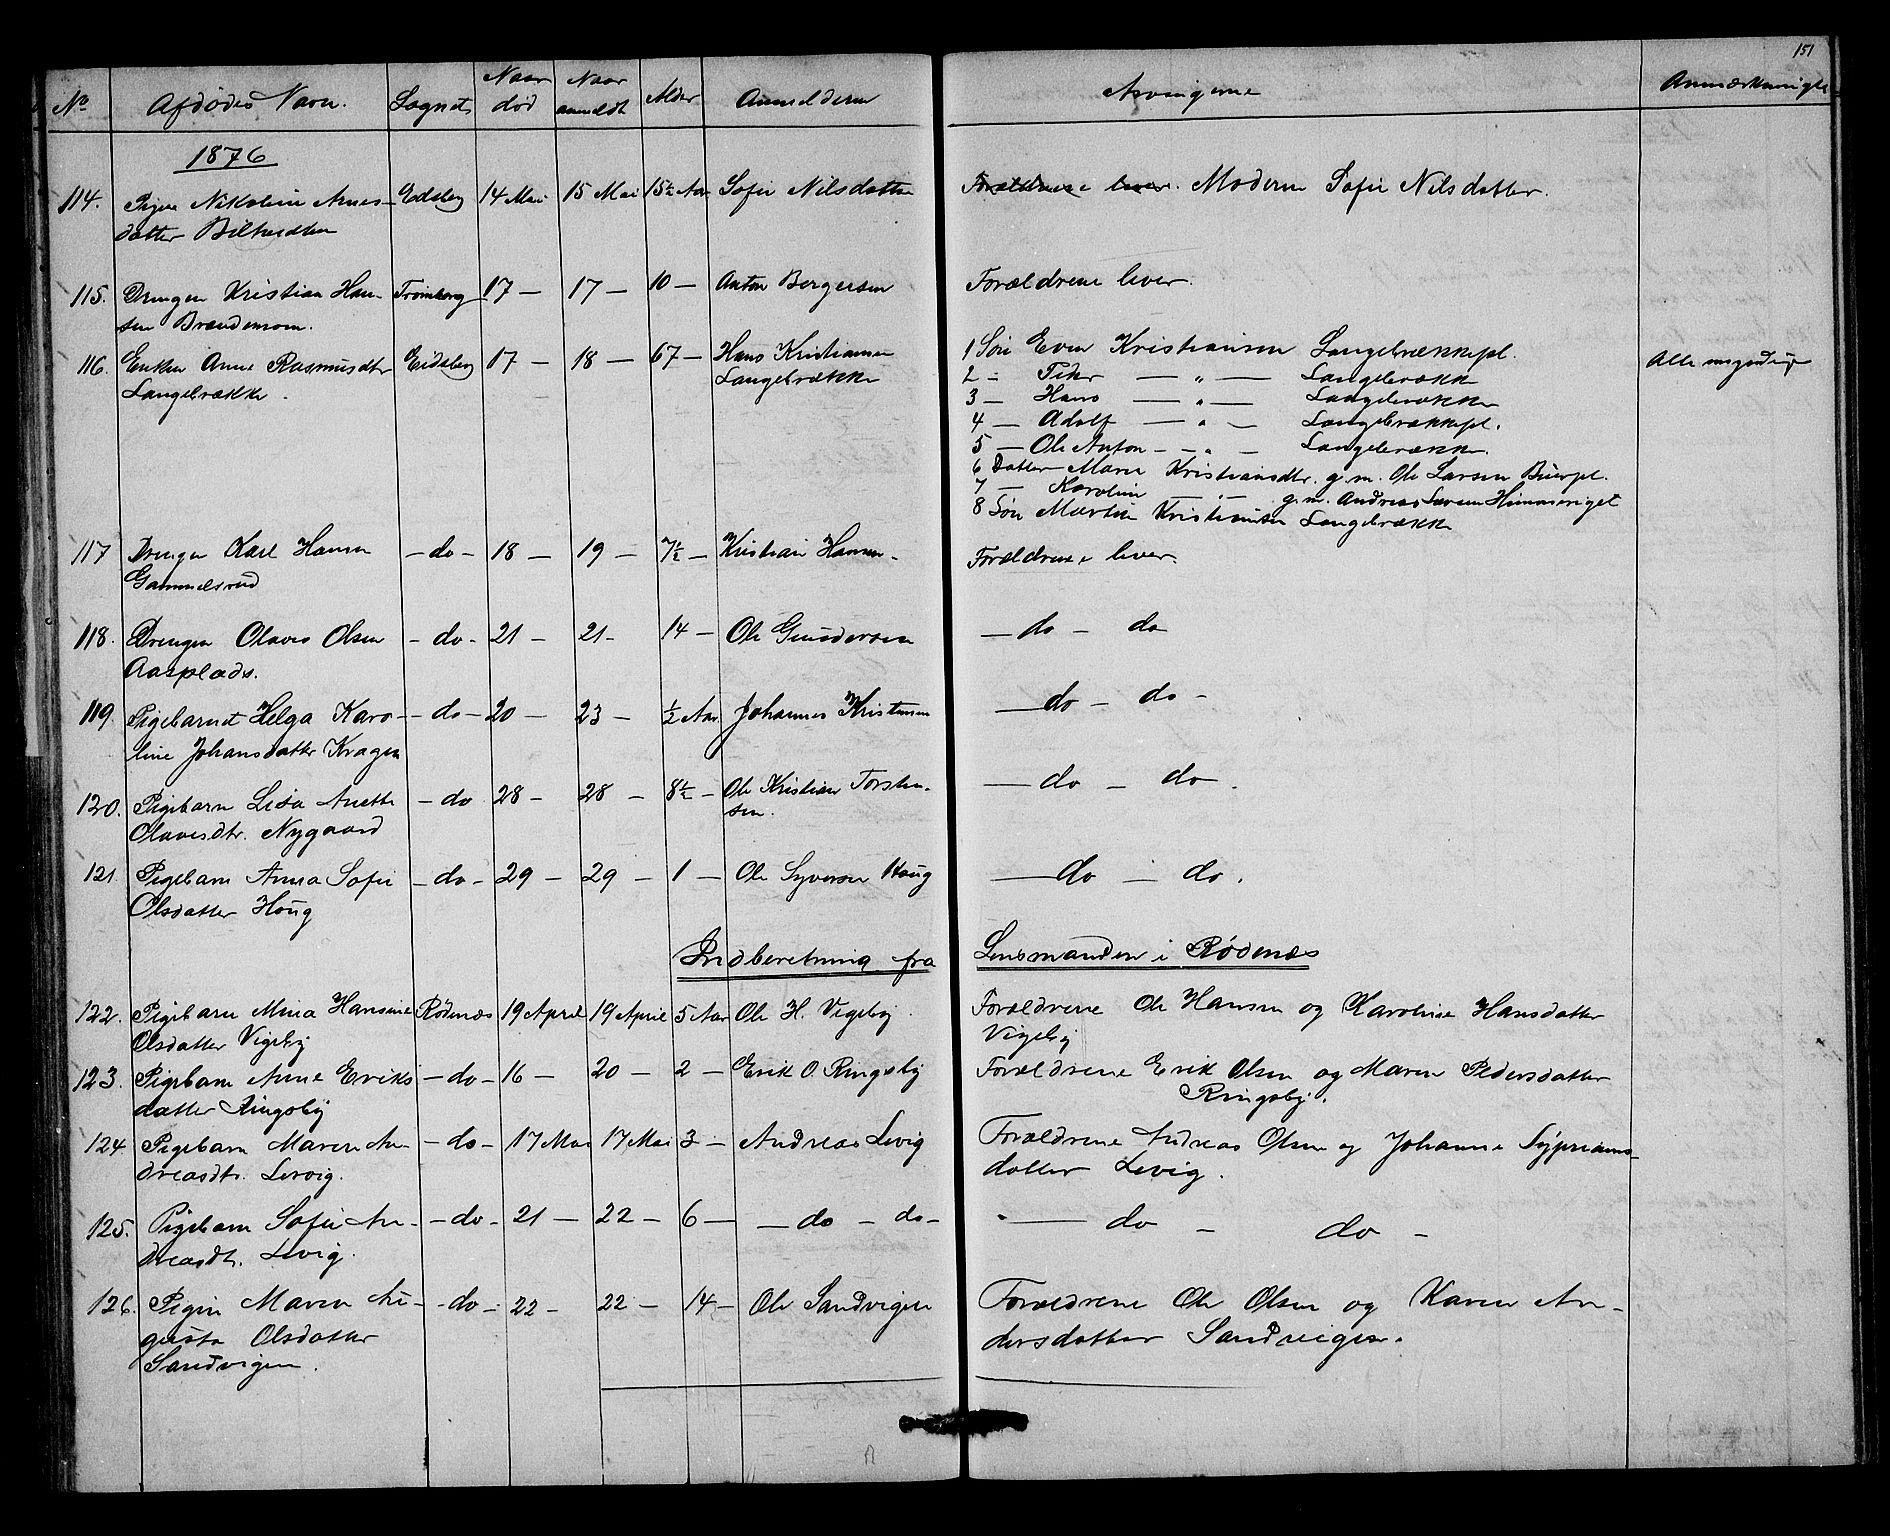 151
No Afdødes Navn. Sognet Naar død Naar anmeldt Alder Anmelderne Arvingerne
1876
114. Nikoline Arnes- Edsberg 14 Mai 15 Mai 15½ Aar Sofie Nilsdatter Forældrene lever. Moderen Sofie Nilsdatter.
datter
115. Drengen Kristian Han- Trømborg 17 — 17 — 10 — Anton Bergersen Forældrene lever.
sen
116. Enken Anne Rasmusdtr Eidsberg 17 — 18 — 67 — Hans Kristiansen 1 Søn Even Kristiansen Langebrækkepl. Alle myndig
Langebrække. Langebrække 2 - Peder — " — Langebrække
3 — Hans — " — Langebrække
4 — Adolf — " — Langebrækkepl.
5 — Ole Anton - - " - Langebrække.
6 Datter Maren Kristiansdtr. g. m. Ole Larsen
7 — Karoline — " — g. m. Andreas Larsen Himmeriget
8 Søn Martin Kristiansen Langebrække
117 Drengen Karl Hansen — do — 18 — 19 — 7½ — Kristian Hansen - Forældrene lever.
Gammelsrud
118. Drengen Olaves Olsen — do - 21 — 21 - 14 — Ole Gundersen — do — do
Aasplads.
119. Pigebarnet Helga Karo- — do — 20 — 23 — ½ Aar Johannes Kristensen — do — do -
line Johansdatter Kragen
120. Pigebarn Lisa Anette — do 28 - 28 — 8½ — Ole Kristian Torsten- — do — do.
Olavesdtr. Nygaard sen.
121. Pigebarn Anna Sofie — do - 29 — 29 — 1 — Ole Syversen Houg — do — do.
Olsdatter Houg
Indberetning fra Lensmanden i Rødenæs
122. Pigebarn Mina Hansine Rødenæs 19 April 19 April 5 Aar Ole H. Vigeby Forældrene Ole Hansen og Karoline Hansdatter
Olsdatter Vigeby Vigeby
123. Pigebarn Anne Eriks — do — 16 — 20 — 2 — Erik O Ringsby Forældrene Erik Olsen og Maren Pedersdatter
datter Ringsby Ringsby.
124 Pigebarn Maren An- — do — 17 Mai 17 Mai 3 — Andreas Levig Forældrene Andreas Olsen og Johanne Syprians-
dreasdtr. Lervig. datter Levig.
125. Pigebarn Sofie An- — do - 21 — 22 — 6 — — do — do - — do — do -
dreasdtr. Levig.
126. Pigen Maren Au- — do - 22 - 22 — 14 — Ole Sandvigen Forældrene Ole Olsen og Karen An-
gusta Olsdatter dersdatter Sandvigen.
Sandvigen.